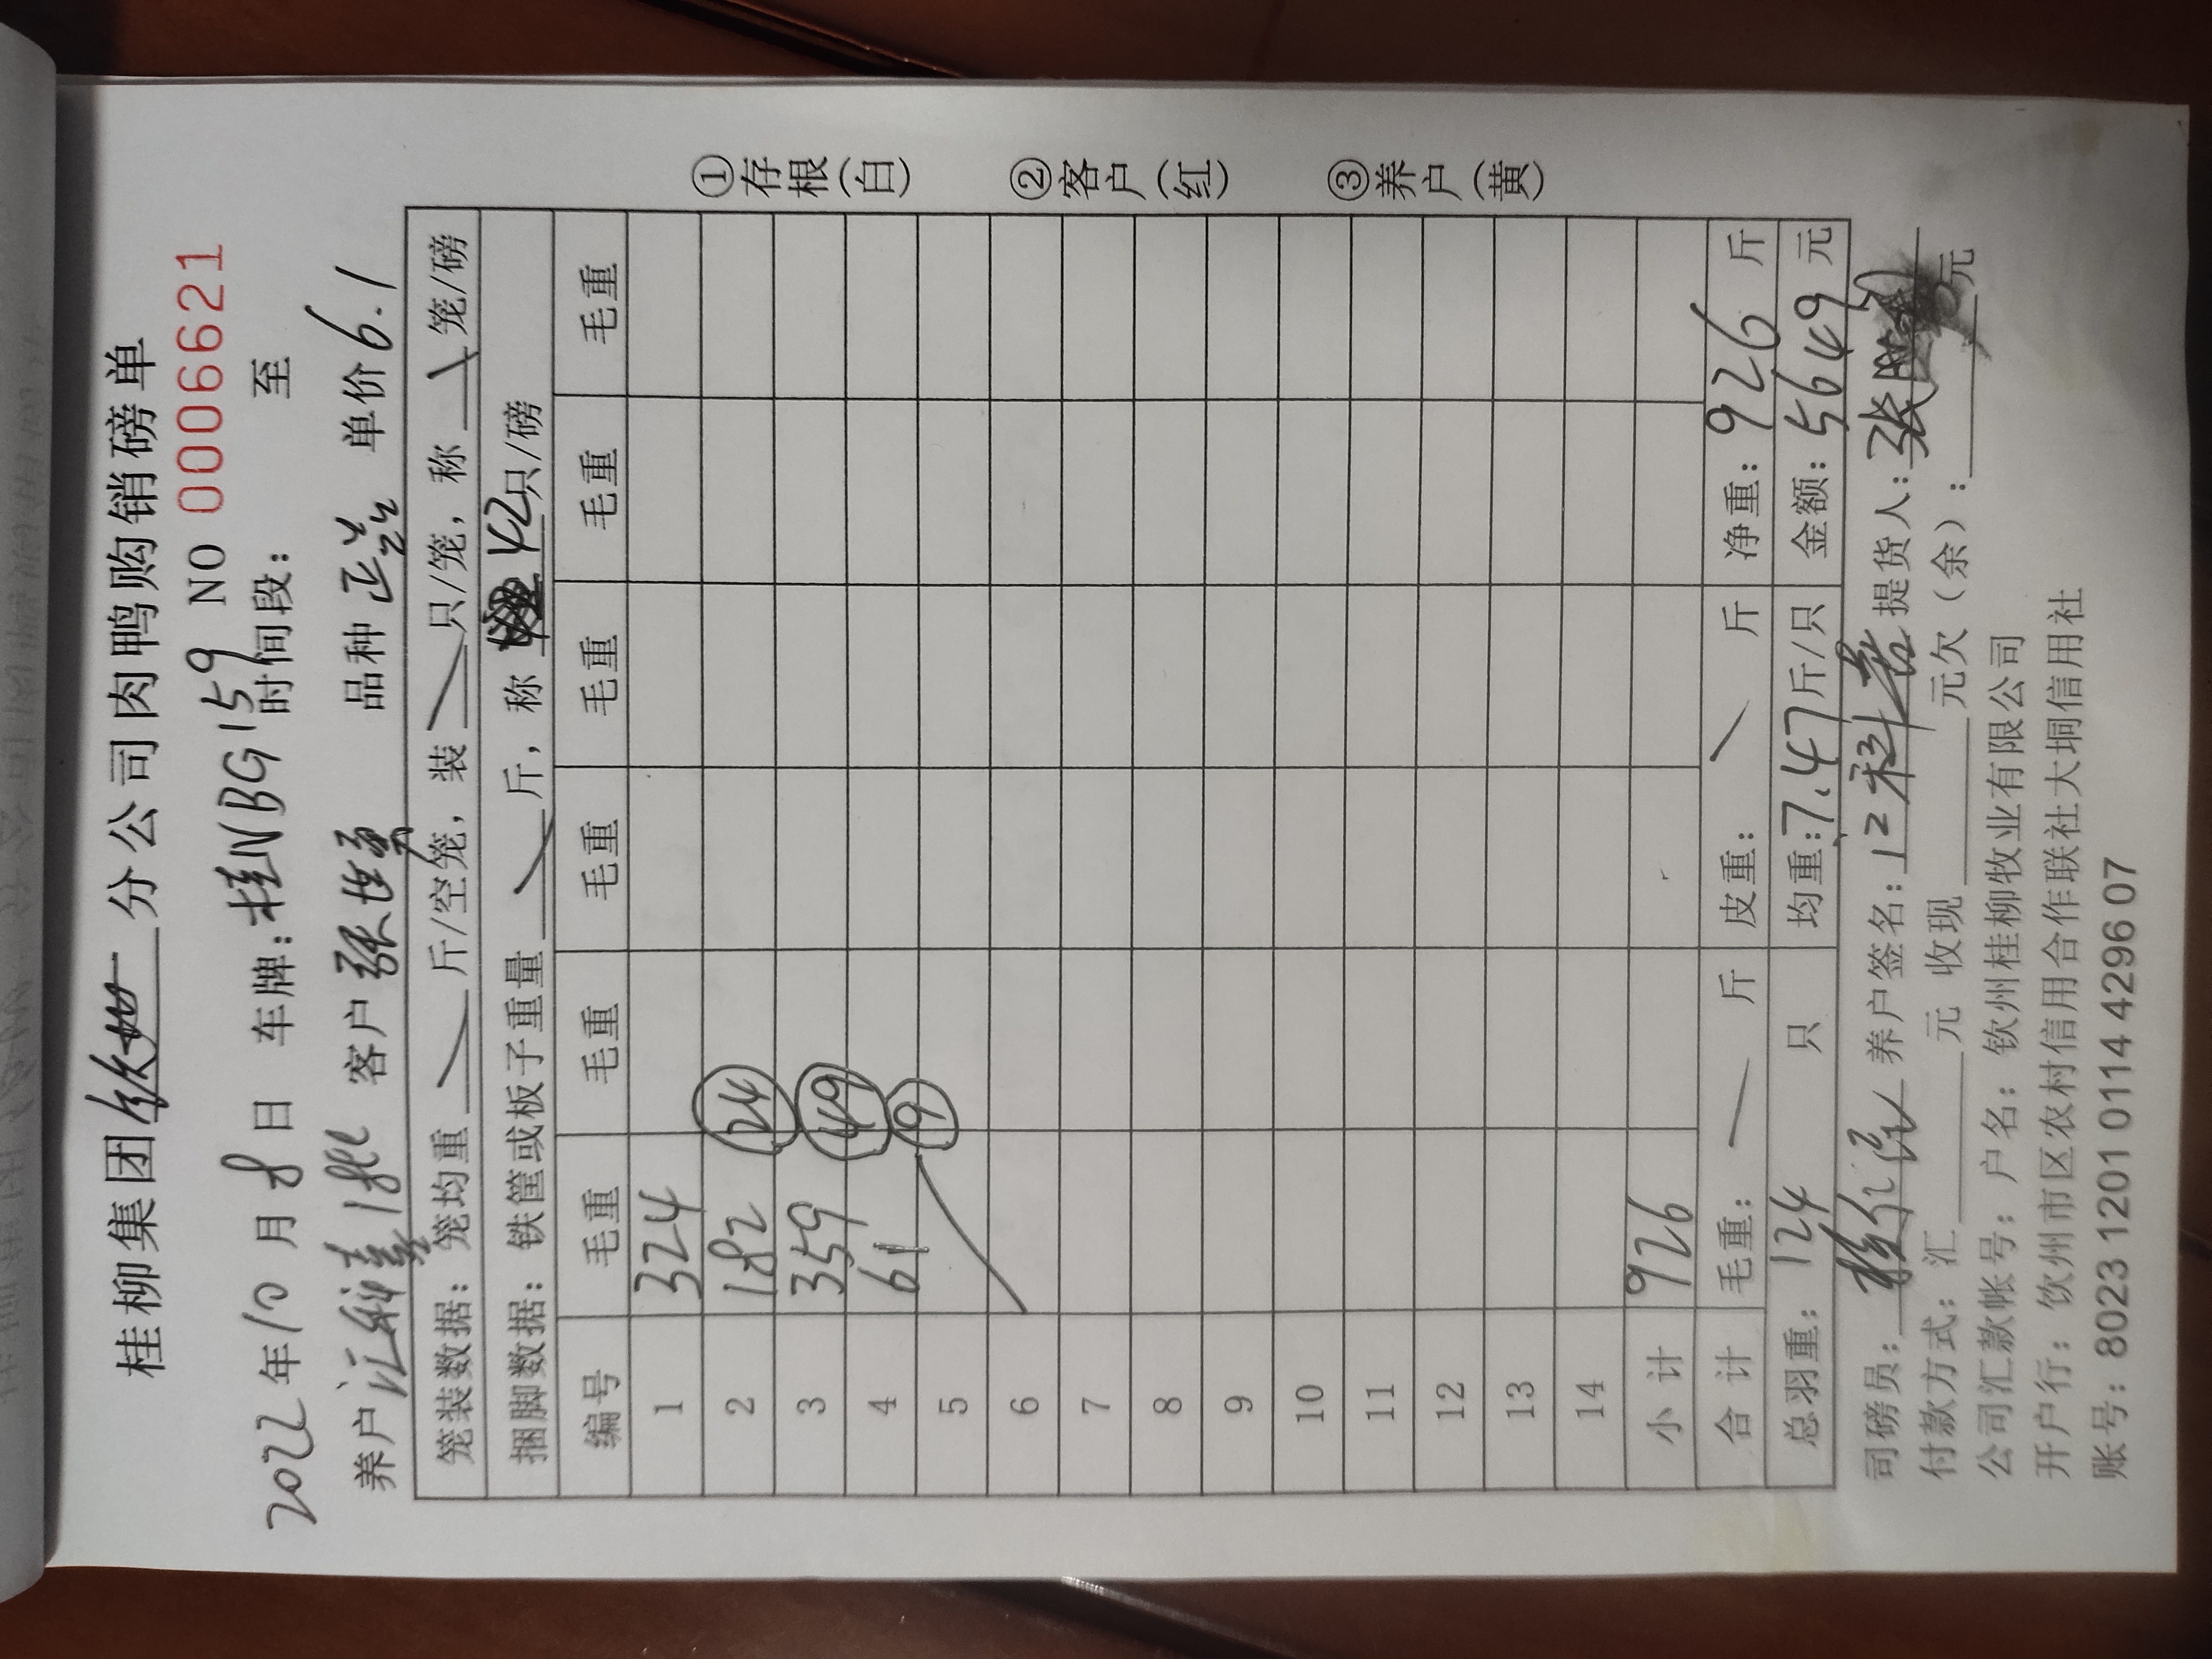 桂柳集团钦州分公司肉鸭购销磅单
2022年10月8日 车牌:桂NBG159 NO 0006621
时间段: 至
养户 江科春 1批 客户 张世英 品种 正芸 单价 6.1
笼装数据:笼均重 斤/空笼,装 只/笼,称 笼/磅
捆脚数据:铁筐或板子重量 斤,称 42只/磅
编号 毛重 毛重 毛重 毛重 毛重 毛重
1 324
2 182 24
3 359 49
4 61 9
5
6
7
8
9
10
11
12
13
14
小计 926
合计 毛重: 斤 皮重: 斤 净重:926 斤
总羽重:124 只 均重:7.47斤/只 金额:5649 元
司磅员: 养户签名:江科春 提货人:张
付款方式:汇 元 收现 元欠(余): 元
公司汇款帐号:户名:钦州桂柳牧业有限公司
开户行:钦州市区农村信用合作联社大垌信用社
账号:8023 1201 0114 4296 07
①存根(白) ②客户(红) ③养户(黄)